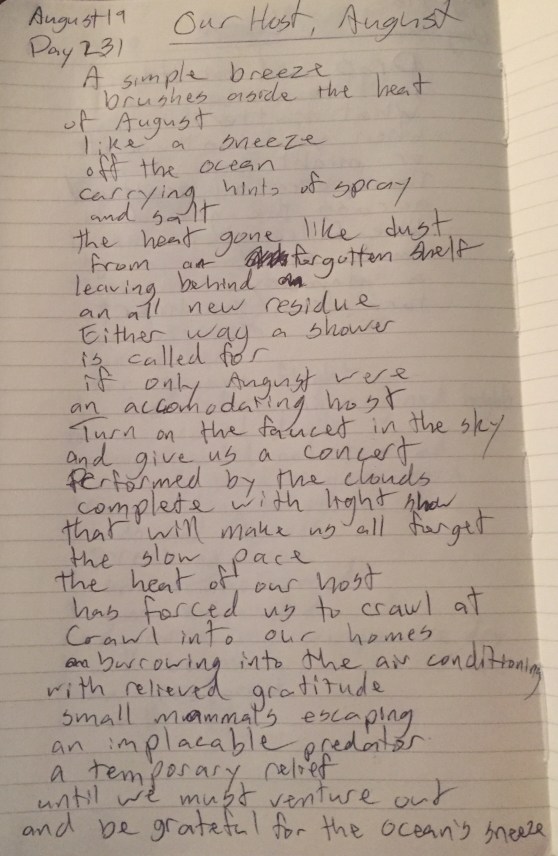 August 19
Our Host, August
Day 231
A simple breeze
brushes aside the heat
of August
like a sneeze
off the ocean
carrying hints of spray
and salt
the heat gone like dust
from a forgotten shelf
leaving behind
an all new residue
Either way a shower
is called for
if only August were
an accomodating host
Turn on the faucet in the sky
and give us a concert
Performed by the clouds
complete with light show
that will make us all forget
the slow pace
the heat of our host
has forced us to crawl at
Crawl into our homes
burrowing into the air conditioning
with relieved gratitude
small mammals escaping
an implacable predator
a temporary relief
until we must venture out
and be grateful for the ocean's sneeze